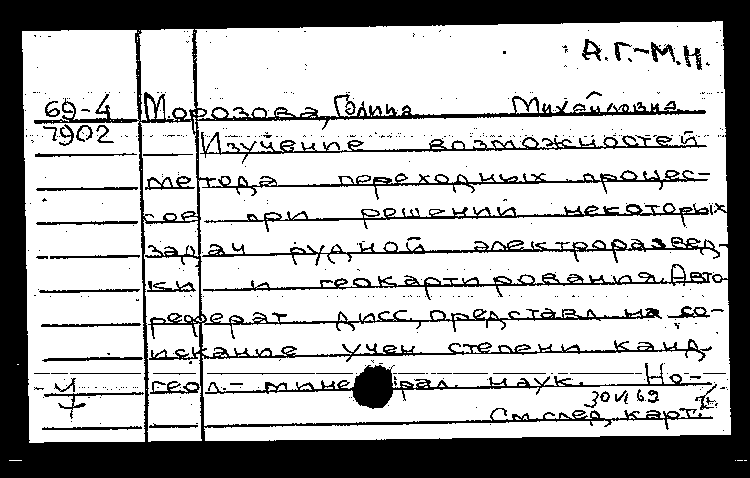 А.Г.-М.Н.
69-4 Морозова, Галина Михайловна
7902 Изучение возможностей
метода переходных процес-
сов при решении некоторых
задач рудной электроразвед-
ки и геокартирования. Авто-
реферат дисс, представл. на со-
искание учен. степени канд.
геол.-минерал. наук. Но-
30 VI 69
См. след. карт.